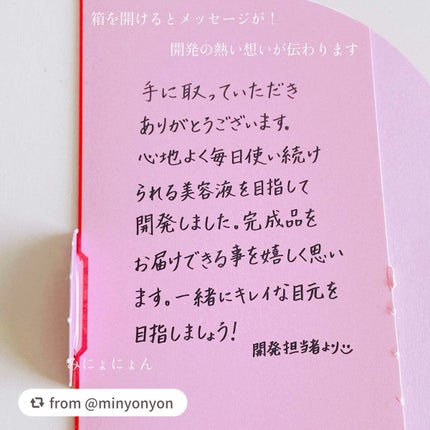 箱を開けるとメッセージが！
開発の熱い想いが伝わります
手に取っていただき
ありがとうございます。
心地よく毎日使い続け
られる美容液を目指して
開発しました。完成品を
お届けできる事を嬉しく思い
ます。一緒にキレイな目元を
目指しましょう!
開発担当者より
みにょにょん
from @minyonyon